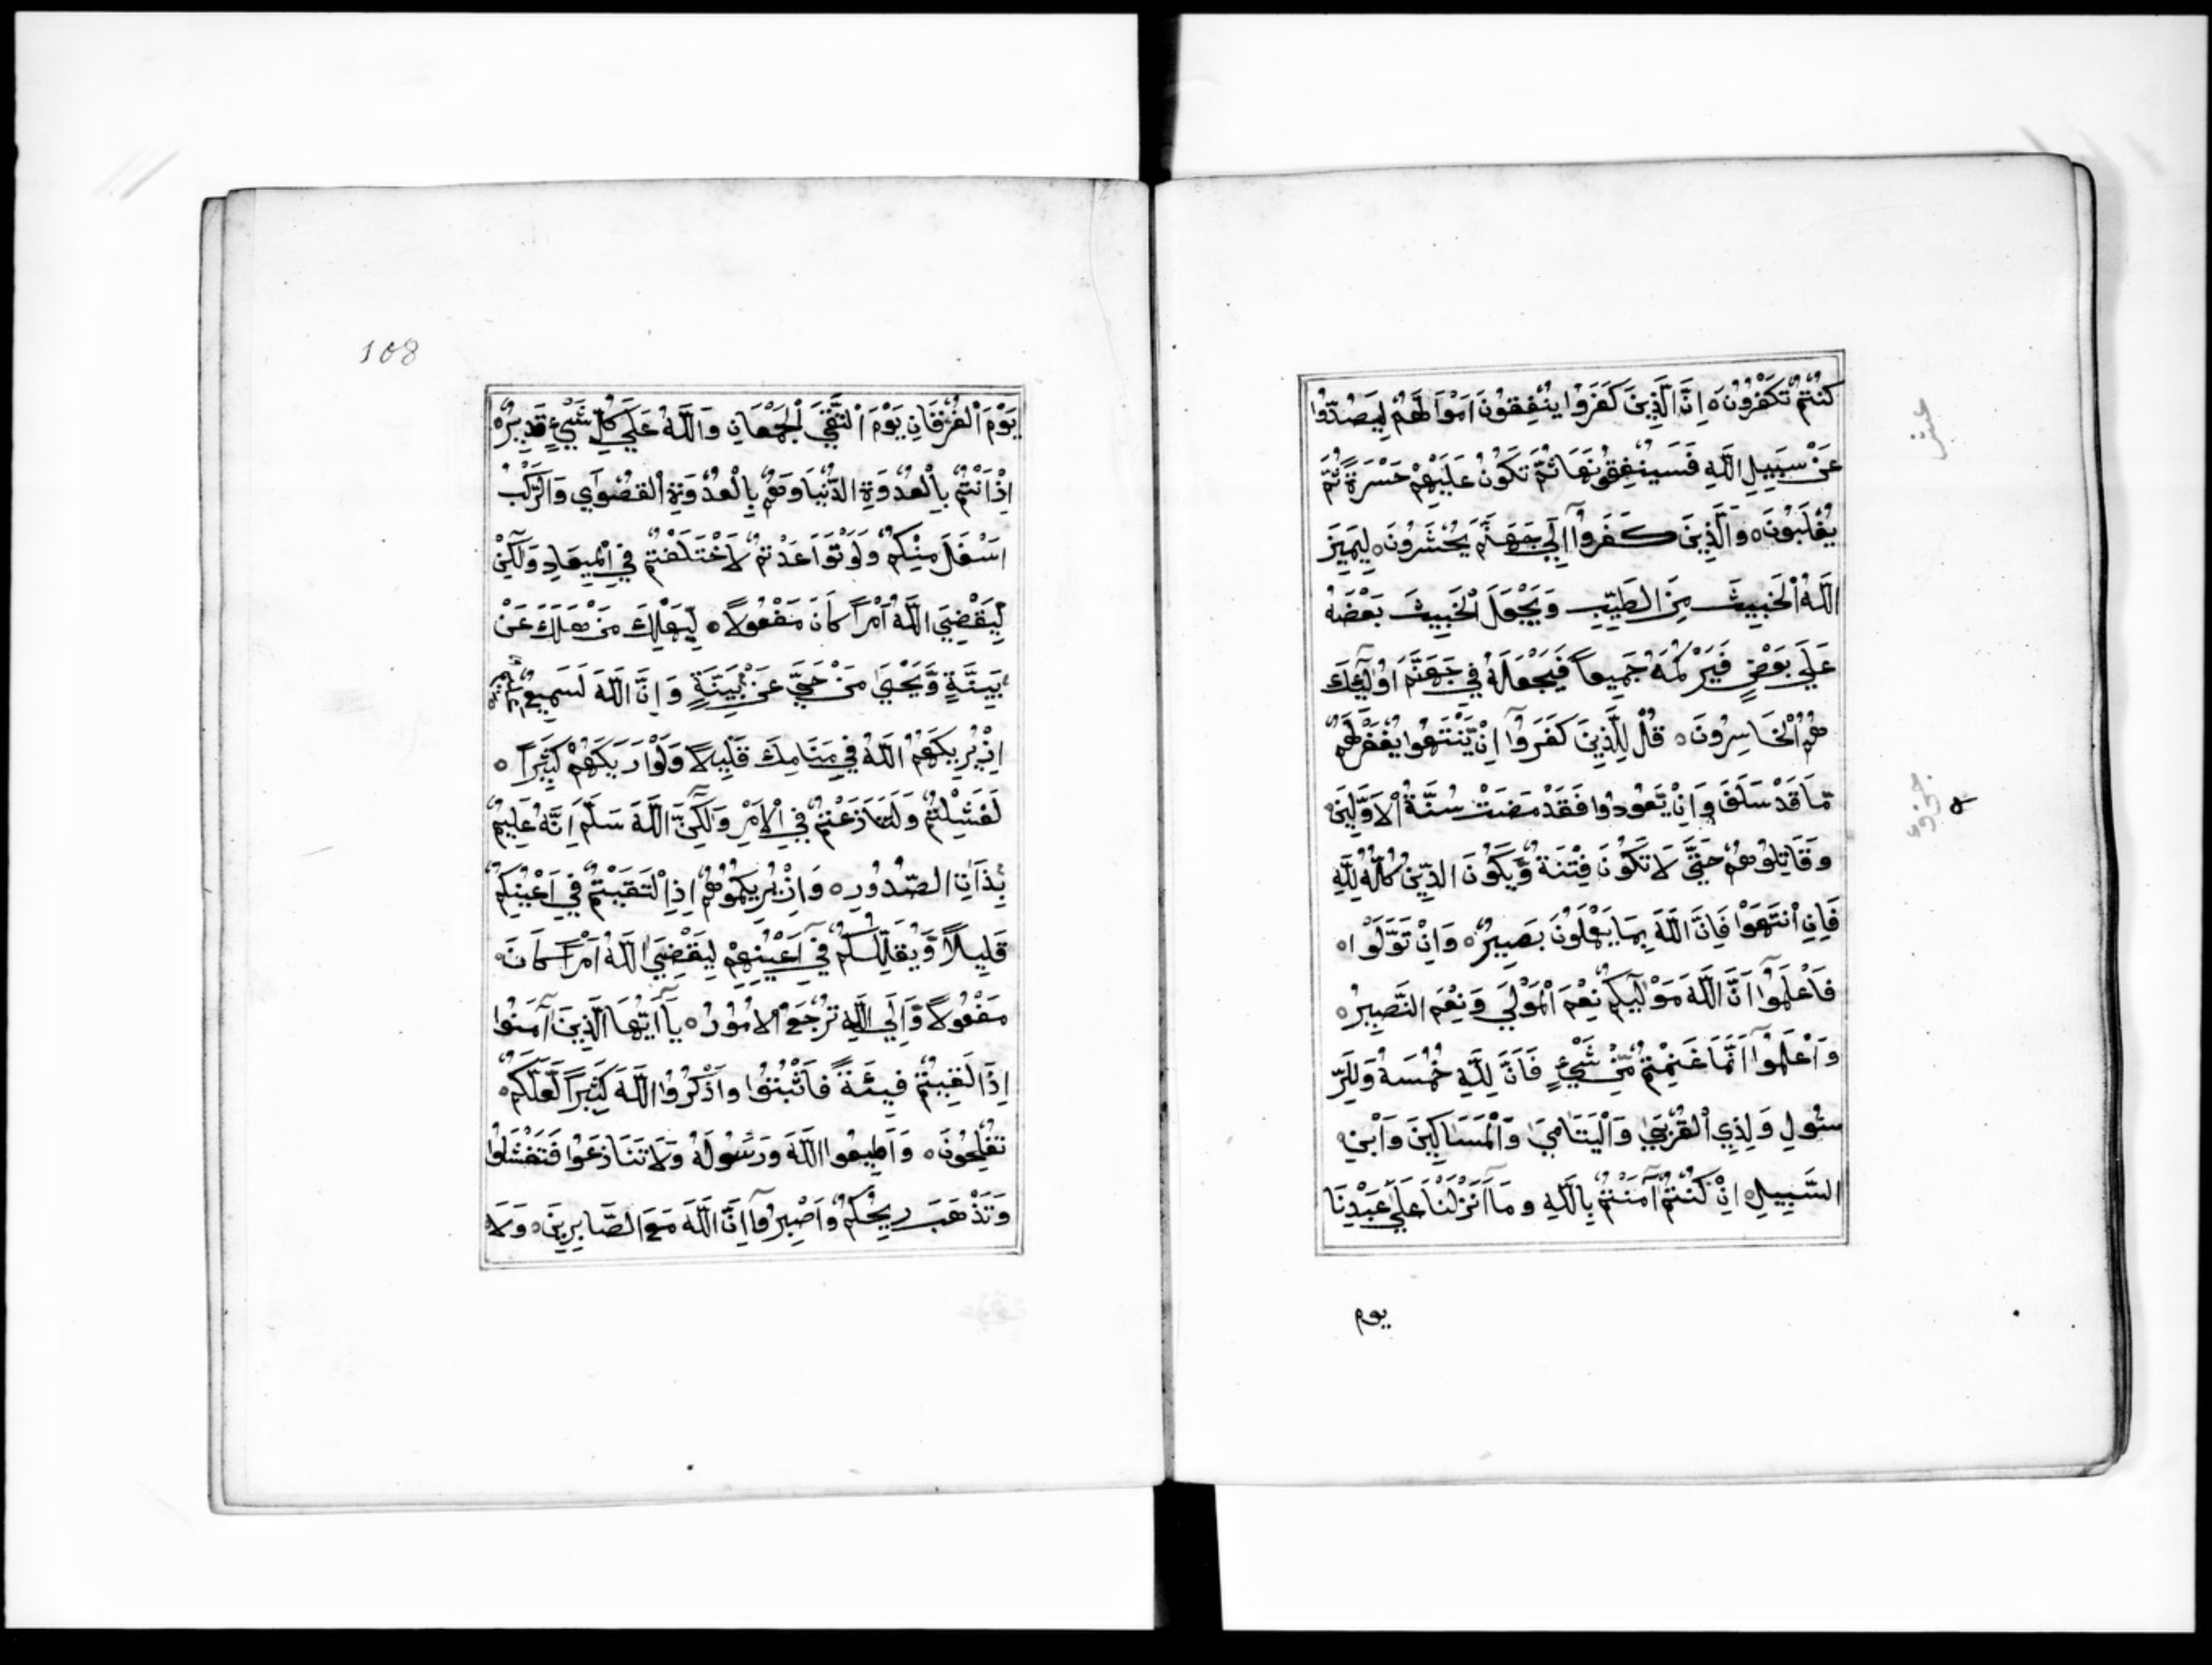 كُنْتُمْ تَكْفُرُونَ ه اِنَّ الَّذِينَ كَفَرُوا يُنْفِقُونَ اَمْوَالَهُمْ لِيَصُدُّوا
عَنْ سَبِيلِ اللَّهِ فَسَيُنْفِقُونَهَا ثُمَّ تَكُونُ عَلَيْهِمْ حَسْرَةً ثُمَّ
يُغْلَبُونَ ه وَالَّذِينَ كَفَرُوآ اِلَي جَهَنَّمَ يُحْشَرُونَ ه لِيَمِيزَ
اللَّهُ الْخَبِيثَ مِنَ الطَّيِّبِ وَيَجْعَلَ الْخَبِيثَ بَعْضَهُ
عَلَي بَعْضٍ فَيَرْكُمَهُ جَمِيعاً فَيَجْعَلَهُ فِي جَهَنَّمَ اُولَٓئِكَ
هُمُ الْخَاسِرُونَ ه قُلْ لِلَّذِينَ كَفَرُوآ اِنْ يَّنْتَهُوا يُغْفَرْلَهُمْ
مَّا قَدْ سَلَفَ وَاِنْ يَّعُودُوا فَقَدْ مَضَتْ سُنَّةُ الْاَوَّلِينَ ه
وَقَاتِلُوهُمْ حَتَّي لَا تَكُونَ فِتْنَةٌ وَّيَكُونَ الدِّينُ كُلُّهُ لِلَّهِ
فَاِنِ انْتَهَوْا فَاِنَّ اللَّهَ بِمَا يَعْمَلُونَ بَصِيرٌ ه وَاِنْ تَوَلَّوْا ه
فَاعْلَمُوآ اَنَّ اللَّهَ مَوْلَيكُمْ نِعْمَ الْمَوْلَي وَنِعْمَ النَّصِيرُ ه
وَاعْلَمُوآ اَنَّمَا غَنِمْتُمْ مِّنْ شَيْءٍ فَاَنَّ لِلَّهِ خُمُسَهُ وَلِلرَّ
سُولِ وَلِذِي الْقُرْبَي وَالْيَتَامَي وَالْمَسَاكِينَ وَابْنِ ه
السَّبِيلِ ه اِنْ كُنْتُمْ آمَنْتُمْ بِاللَّهِ وَمَآ اَنْزَلْنَا عَلَي عَبْدِنَا
يوم
عشر
108
يَوْمَ الْفُرْقَانِ يَوْمَ الْتَقَي الْجَمْعَانِ وَاللَّهُ عَلَي كُلِّ شَيْءٍ قَدِيرٌ ه
اِذْ اَنْتُمْ بِالْعُدْوَةِ الدُّنْيَا وَهُمْ بِالْعُدْوَةِ الْقُصْوَي وَالرَّكْبُ
اَسْفَلَ مِنْكُمْ وَلَوْ تَوَاعَدْتُمْ لَاخْتَلَفْتُمْ فِي الْمِيعَادِ وَلَكِنْ
لِّيَقْضِيَ اللَّهُ اَمْراً كَانَ مَفْعُولاً ه لِيَهْلِكَ مَنْ هَلَكَ عَنْ
بَيِّنَةٍ وَّيَحْيَي مَنْ حَيَّ عَنْ بَيِّنَةٍ وَاِنَّ اللَّهَ لَسَمِيعٌ عَلِيمٌ ه
اِذْ يُرِيكَهُمُ اللَّهُ فِي مَنَامِكَ قَلِيلاً وَلَوْ اَرَيكَهُمْ كَثِيراً ه
لَفَشِلْتُمْ وَلَتَنَازَعْتُمْ فِي الْاَمْرِ وَلَكِنَّ اللَّهَ سَلَّمَ اِنَّهُ عَلِيمٌ
بِذَاتِ الصُّدُورِ ه وَاِذْ يُرِيكُمُوهُمْ اِذِ الْتَقَيْتُمْ فِي اَعْيُنِكُمْ
قَلِيلاً وَّيُقَلِّلُكُمْ فِي اَعْيُنِهِمْ لِيَقْضِيَ اللَّهُ اَمْراً كَانَ ه
مَفْعُولاً وَّاِلَي اللَّهِ تُرْجَعُ الْاُمُورُ ه يَآ اَيُّهَا الَّذِينَ آمَنُوا
اِذَا لَقِيتُمْ فِيئَةً فَاثْبُتُوا وَاذْكُرُوا اللَّهَ كَثِيراً لَّعَلَّكُمْ ه
تُفْلِحُونَ ه وَاَطِيعُوا اللَّهَ وَرَسُولَهُ وَلَا تَنَازَعُوا فَتَفْشَلُوا
وَتَذْهَبَ رِيحُكُمْ وَاصْبِرُوآ اِنَّ اللَّهَ مَعَ الصَّابِرِينَ ه وَلَا